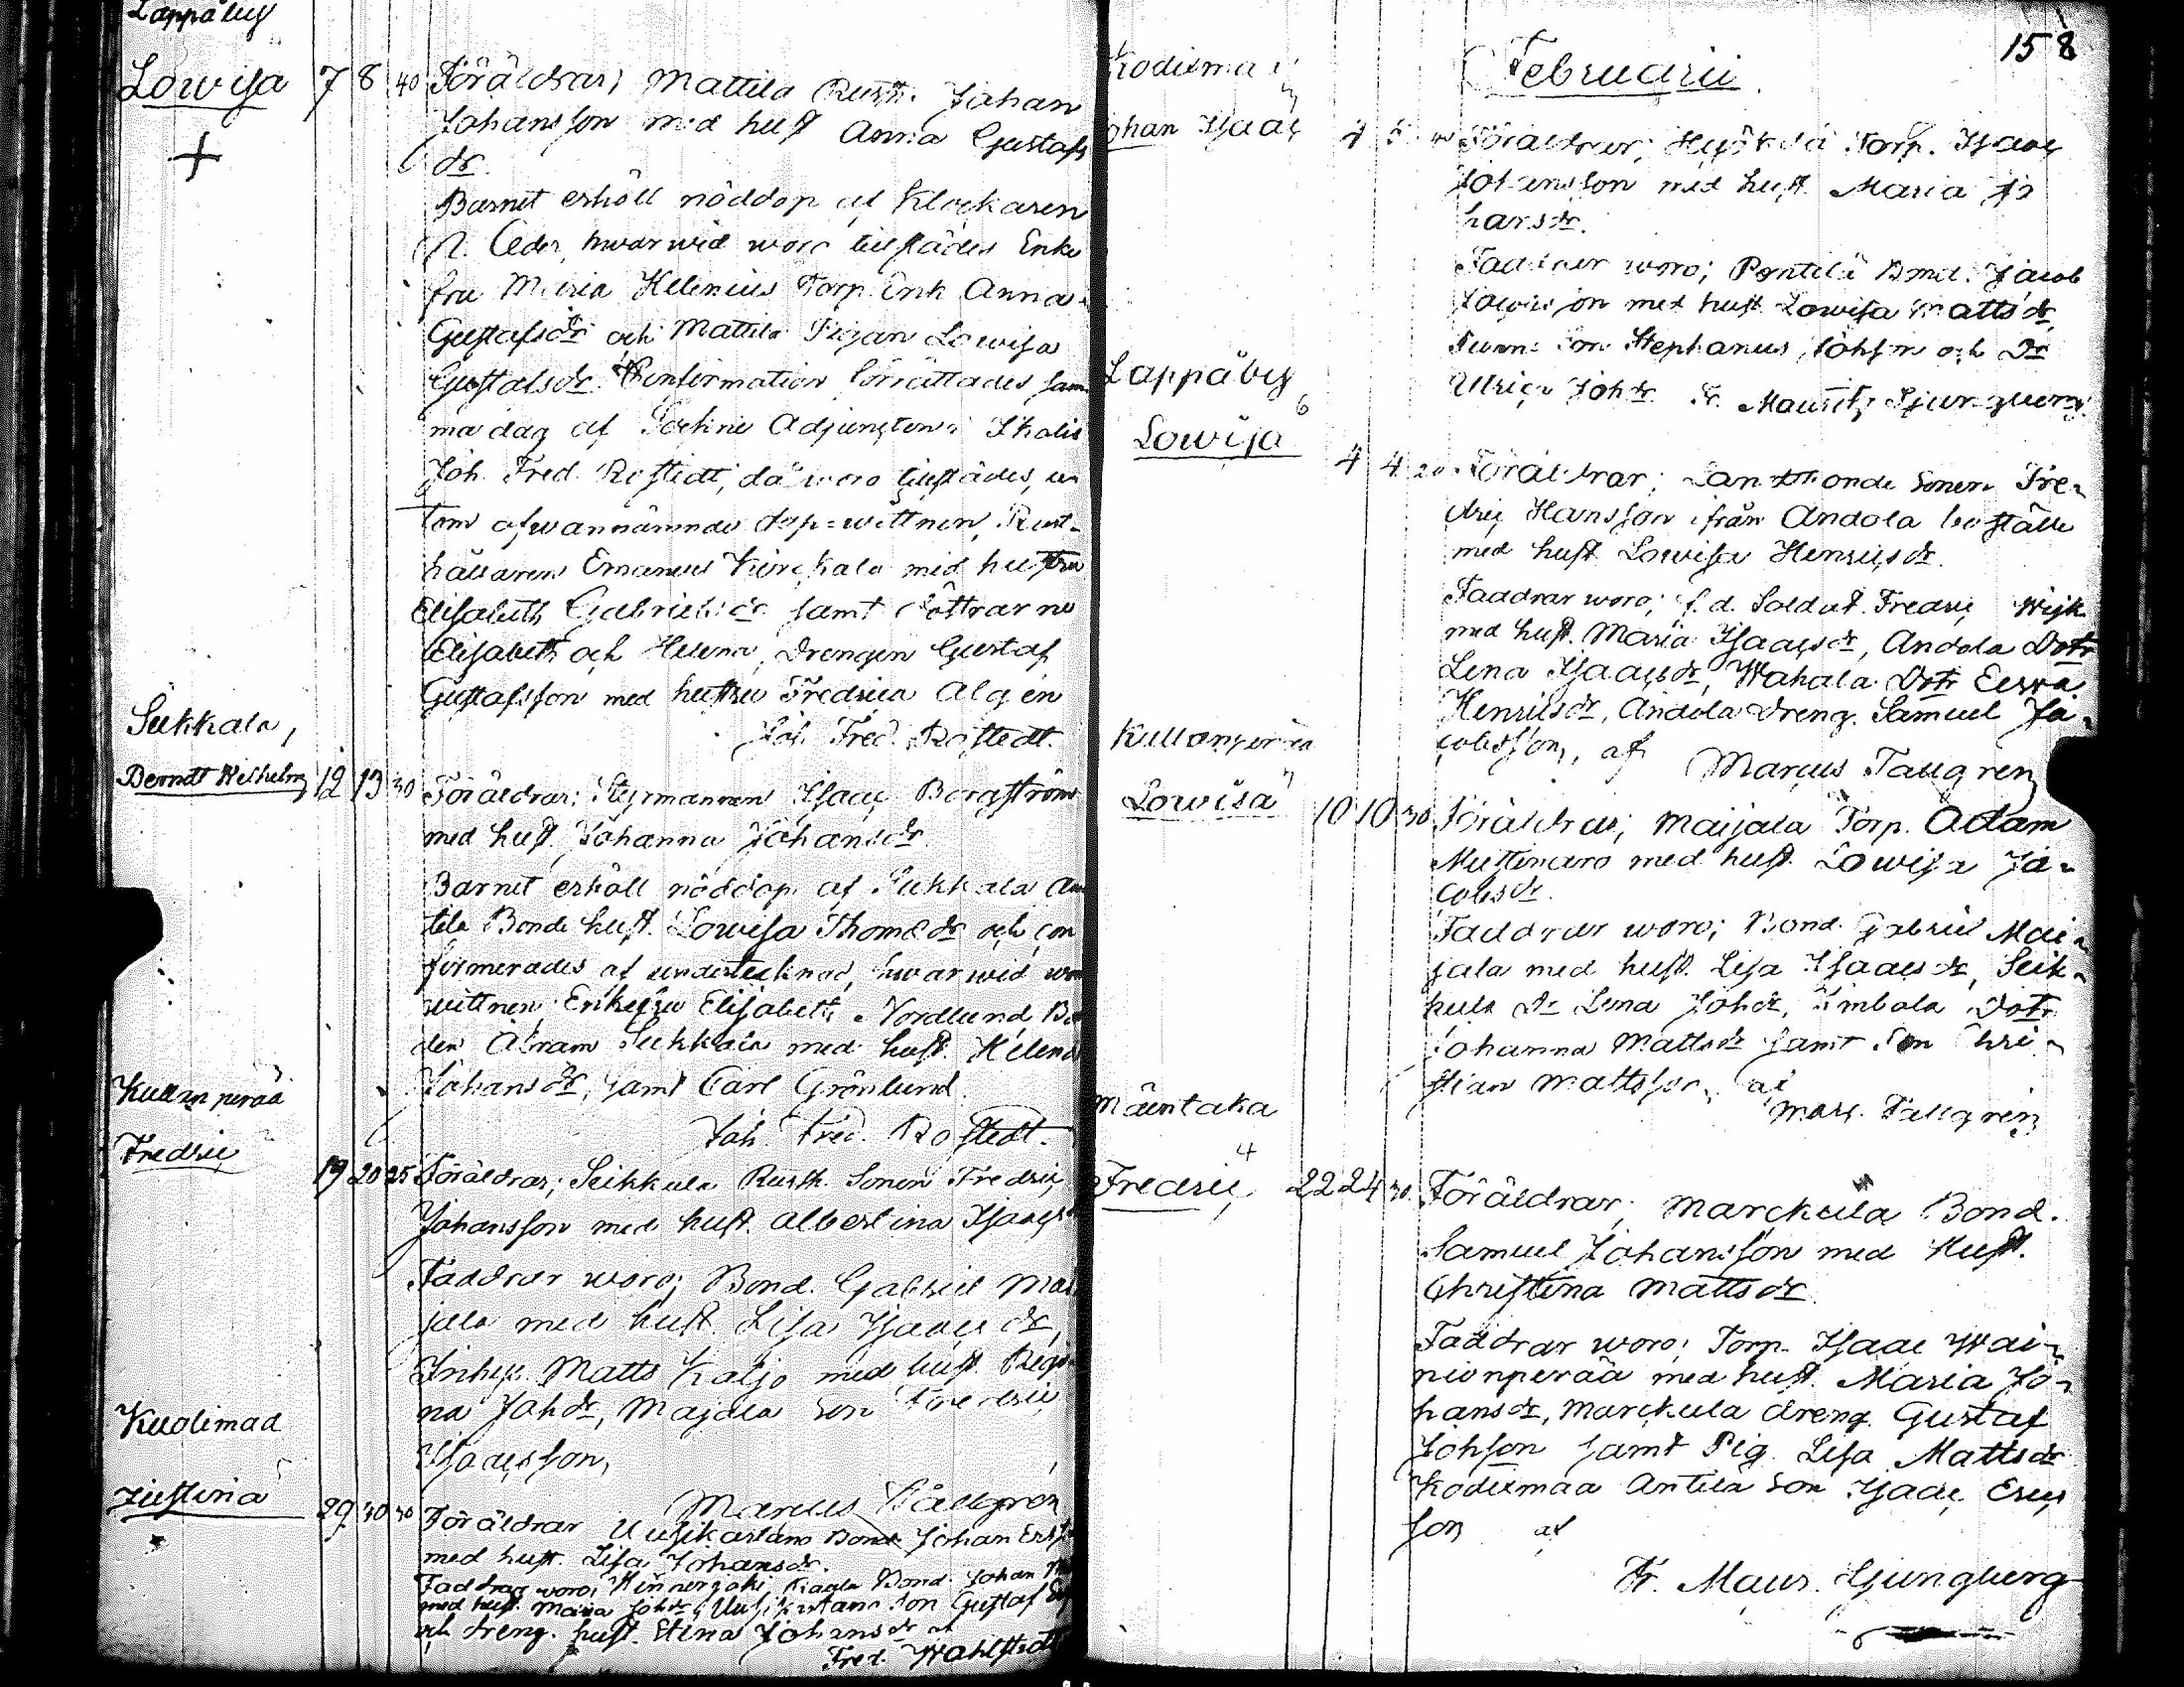 Lappäby
Lowisa 7 8 40 Föräldrar; Mattila Rusth. Johan
Johansson med hust Anna Gustafs
dr.
Barnet erhöll nöddop af Klockaren
Ceder, hwarwid woro tillstädes Enke
fru Maria Helenius Torp. Enk Anna
Gustafsdr och Mattila Pigan Lowisa
Gustafsdr. Confirmation förrättades sam
ma dag af Sockne Adjuncten i Ikalis
Joh. Fred. Rostedt, då woro tillstädes, u
tom ofwannämnde dop=wittnen, Rust-
hållaren Emanuel Kirckala med hustru
Elisabeth Gabrielsdr samt döttrarne
Elisabeth och Helena, Drengen Gustaf
Gustafsson med hustru Fredrica Algen
Joh. Fred. Rostedt.
Sukkala,
Berndt Wilhelm 12 13 30 Föräldrar; Styrmannen Isaac Borgström
med hust. Johanna Johansdr.
Barnet erhöll nöddop af Sukkala An
tila Bonde hust. Lowisa Thomasdr och con
firmerades af undertecknad, hwarwid woro
wittnen Enkefru Elisabeth Nordlund Bo
den Abram Sukkala med hust. Helena
Johansdr, samt Carl Grönlund
Joh. Fred. Rostedt.
Kullanperää
Fredric 19 20 25 Föräldrar; Seikkula Rusth. Sonen Fredric
Johansson med hust. Albertina Isaacs
Faddrar woro; Bond. Gabriel Mai
jala med hust. Lisa Isaacsdr,
Inhys. Matts Katjo med hust. Regi
na Johdr, Majala Son Fredric
Isacsson,
Marcus Tallgren
Kuolimaa
Justina 29 30 30 Föräldrar Uusikartano Bond Johan Ers
med hust. Lisa Johansdr.
Faddrar woro; Hinnerjoki Bond. Johan
med hust. Maria Johdr, Uusikartano Son Gustaf
och dreng. hust. Stina Johansdr af
Fred. Wahlstedt
158
Februarii
Kodixmaa
Johan Isaac 4 5 Föräldrar; Torp. Isaac
Johansson med hust. Maria Jo
hansdr.
Faddrar woro; Pentilä Bond. Jacob
med hust. Lowisa Mattsdr,
Son Stephanus Johson och Dr
Ulrica Johdr. Fr. Mauritz Ljungberg.
Lappäby
Lowisa 4 4 20 Föräldrar; Landtbonde Sonen Fre-
dric Hansson ifrån Andola boställe
med hust Lowisa Henricsdr.
Faddrar woro; f. d. Soldat. Fredric Wijk
med hust. Maria Isaacsdr, Andola Dotr
Lena Isaacsdr, Wahala Dotr Eewa
Henricsdr, Andola Dreng. Samuel Ja-
cobsson, af Marcus Tallgren
Kullanperää
Lowisa 10 10 30 Föräldrar; Maijala Torp. Adam
med hust. Lowisa Ja-
cobsdr.
Faddrar woro; Bond. Gabriel Mai-
jala med hust. Lisa Isaacsdr, Seik-
kula Dr Lena Johdr, Dotr
Johanna Mattsdr samt Son Chri-
stian Mattsson, af
Marc. Tallgren
Mäentaka
Fredric 4 22 24 30 Föräldrar; Marckula Bond.
Samuel Johansson med Hust.
Christina Mattsdr.
Faddrar woro; Torp. Isaac Wai-
nionperää med hust. Maria Jo-
hansdr, Marckula dreng. Gustaf
Johson samt Pig. Lisa Mattsdr
Kodixmaa Antila Son Isaac Erics
son af
Fr. Maur. Ljungberg